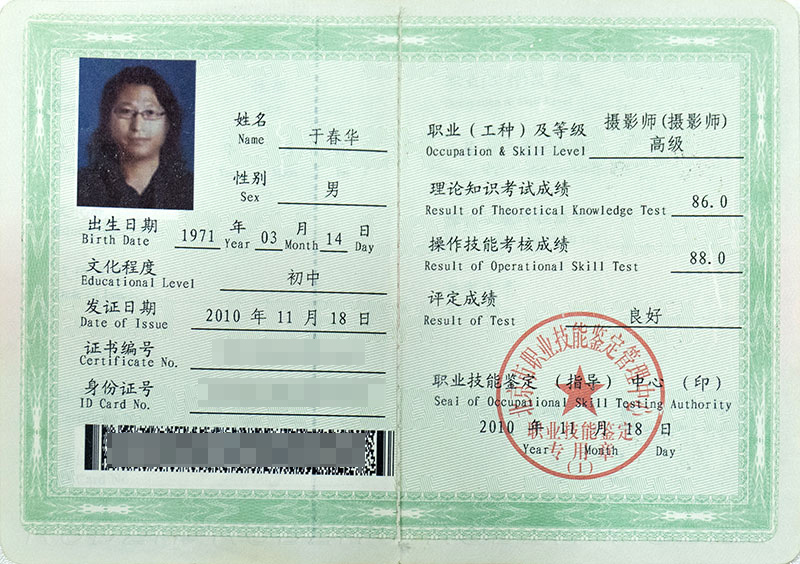 姓名
Name
于春华
性别
Sex
男
出生日期
Birth Date
1971 年 03 月 14 日
Year Month Day
文化程度
Educational Level
初中
发证日期
Date of Issue
2010 年 11 月 18 日
证书编号
Certificate No.
身份证号
ID Card No.
职业（工种）及等级
Occupation & Skill Level
摄影师(摄影师)
高级
理论知识考试成绩
Result of Theoretical Knowledge Test
86.0
操作技能考核成绩
Result of Operational Skill Test
88.0
评定成绩
Result of Test
良好
职业技能鉴定（指导）中心（印）
Seal of Occupational Skill Testing Authority
2010 年 11 月 18 日
Year Month Day
北京市职业技能鉴定管理中心
职业技能鉴定
专用章
(1)